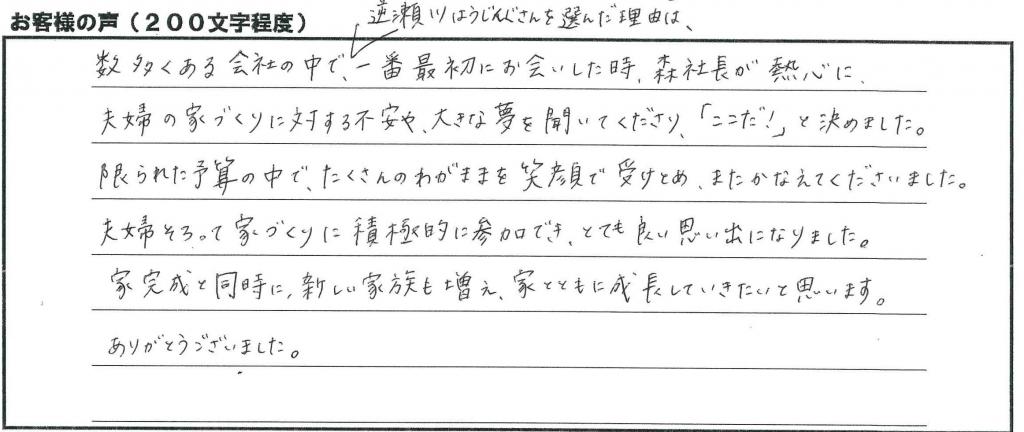 お客様の声（２００文字程度）
逆瀬川はうじんぐさんを選んだ理由は、
数多くある会社の中で、一番最初にお会いした時、森社長が熱心に、
夫婦の家づくりに対する不安や、大きな夢を聞いてくださり、「ここだ！」と決めました。
限られた予算の中で、たくさんのわがままを笑顔で受けとめ、またかなえてくださいました。
夫婦そろって家づくりに積極的に参加でき、とても良い思い出になりました。
家完成と同時に、新しい家族も増え、家とともに成長していきたいと思います。
ありがとうございました。